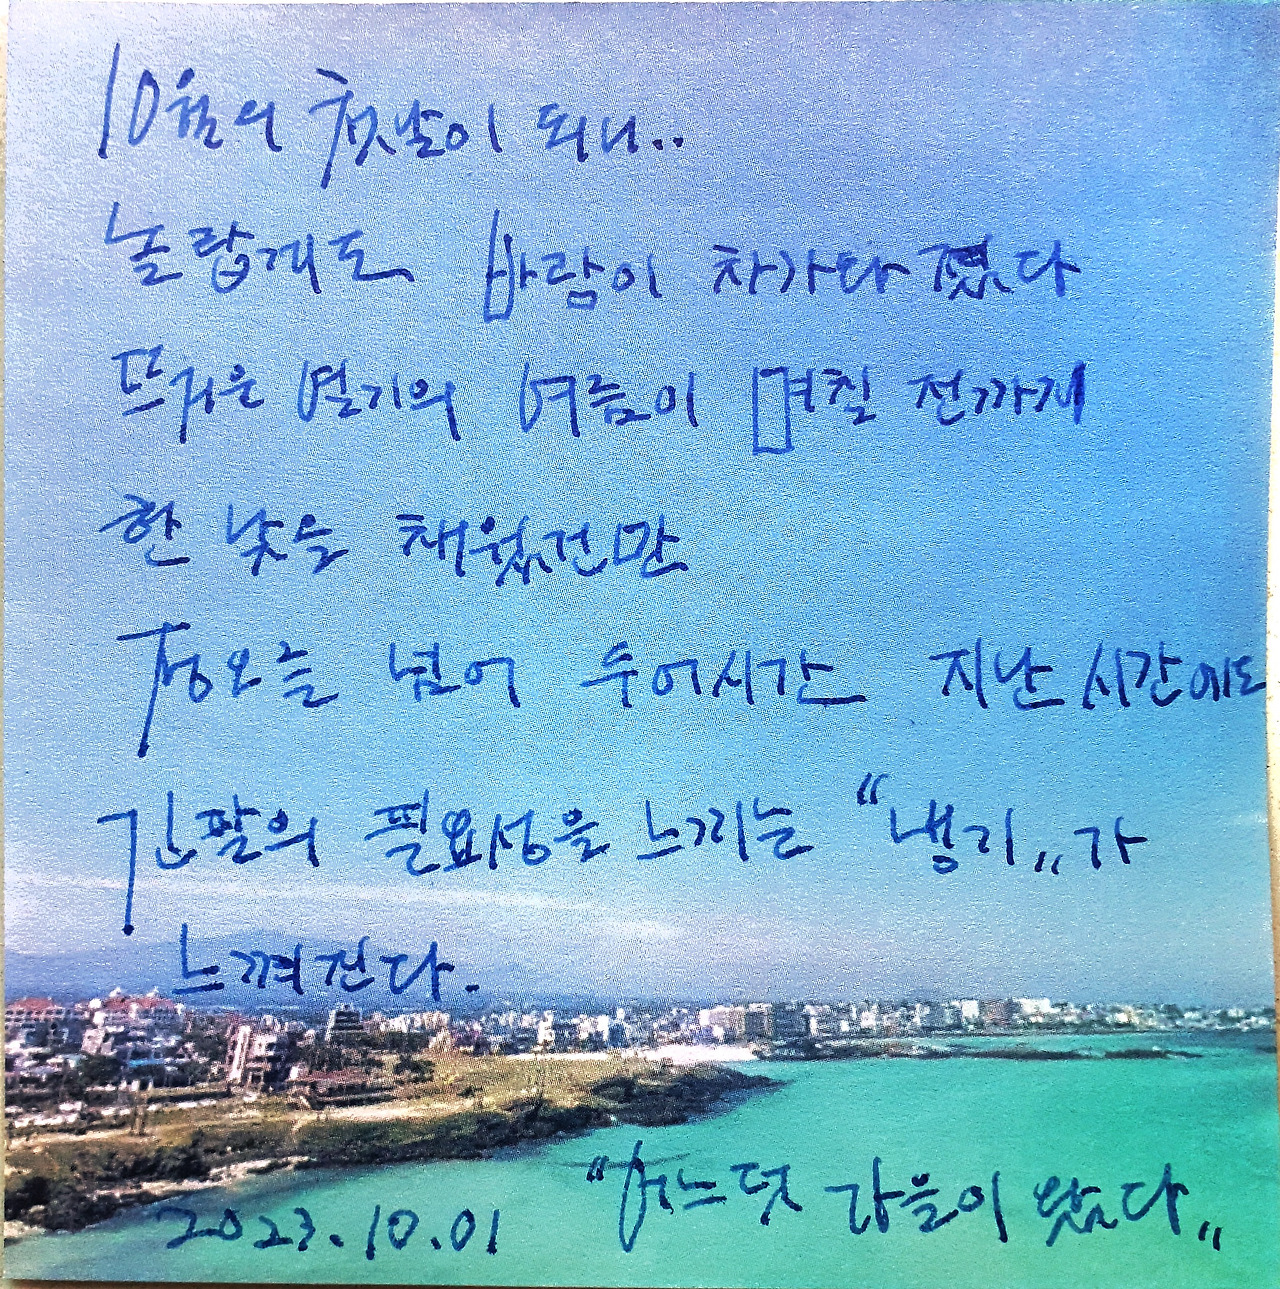 10월의 첫날이 되니..
놀랍게도 바람이 차가와 졌다
뜨거운 열기의 여름이 며칠 전까지
한 낮을 채웠건만
정오를 넘어 두어시간 지난 시간에도
긴팔의 필요성을 느끼는 "냉기"가
느껴진다.
2023.10.01 "어느덧 가을이 왔다"